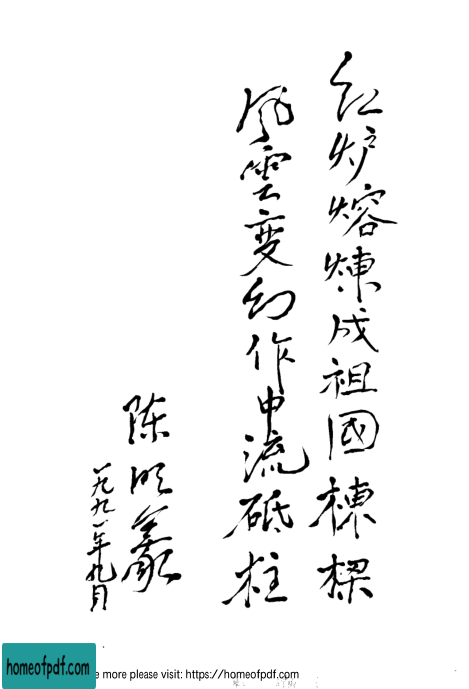 红炉熔煉成祖國棟樑
风雲变幻作中流砥柱
陈明義
一九九一年九月
homeofpdf.com
e more please visit: https://homeofpdf.com